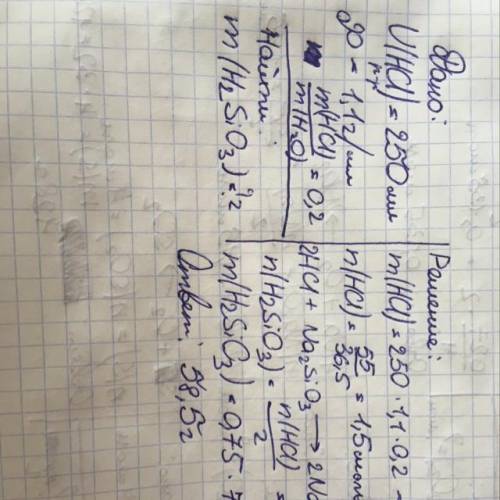 Дано:
V(HCl) = 250 мл
р-р
ρ = 1,1 г/мл
m(HCl)
m(H₂O) = 0,2
Найти
m(H₂SiO₃) = ? г
Решение:
m(HCl) = 250 · 1,1 · 0,2
n(HCl) = 55/36,5 = 1,5 моль
2HCl + Na₂SiO₃ → 2Na
n(H₂SiO₃) = n(HCl)/2 =
m(H₂SiO₃) = 0,75 · 7
Ответ: 58,5 г